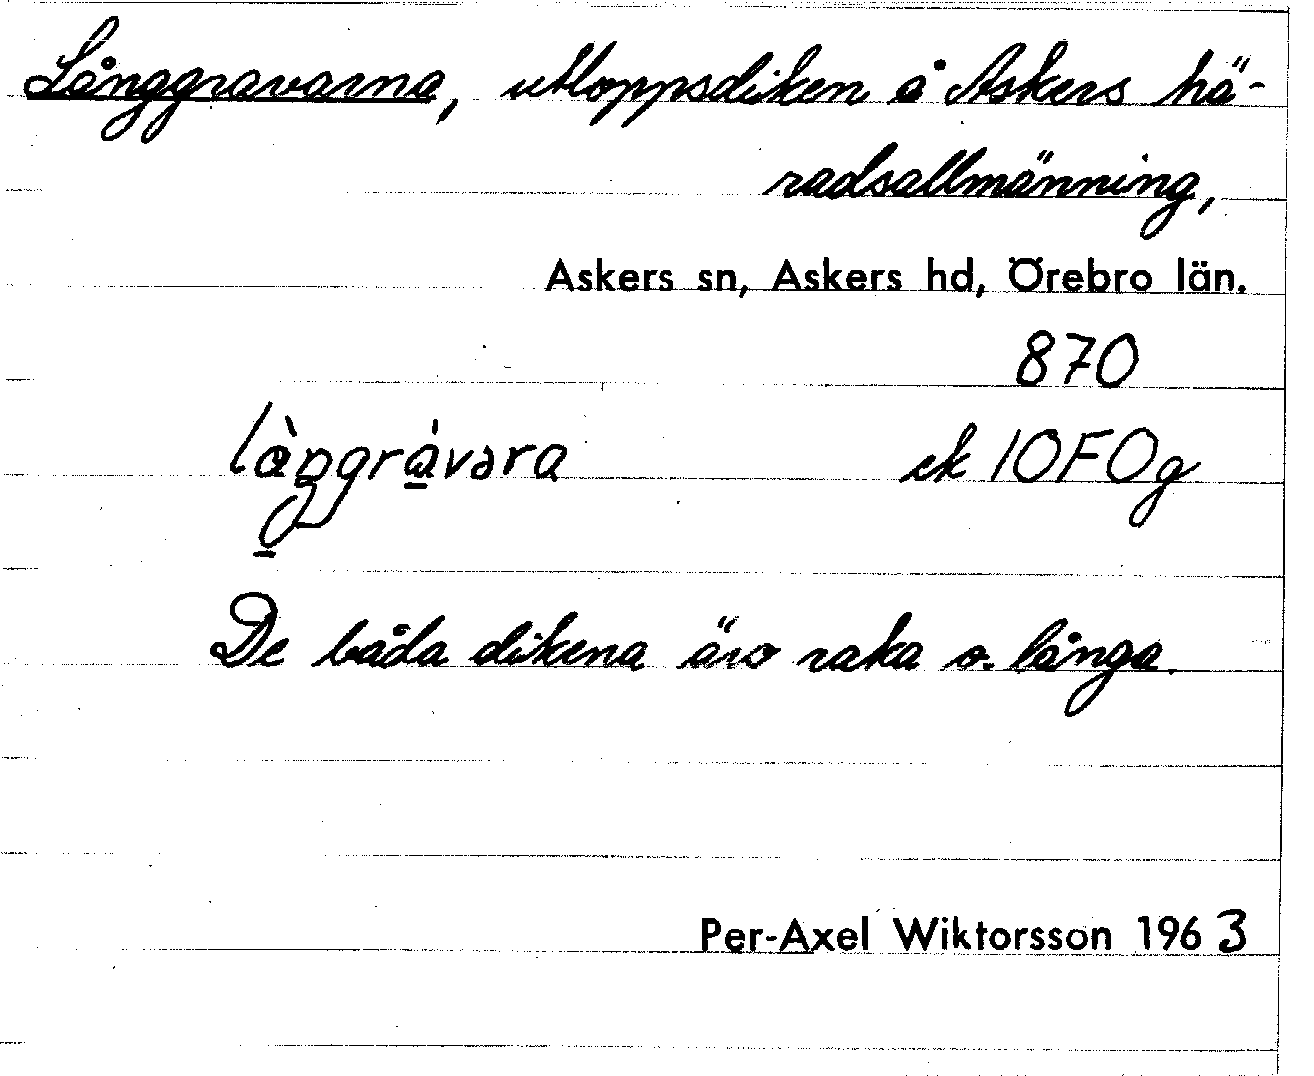 Långgravarna, utloppsdiken å Askers hä-
radsallmänning,
Askers sn, Askers hd, Örebro län.
870
ek 10F0g
De båda dikena äro raka o. långa.
Per-Axel Wiktorsson 1963